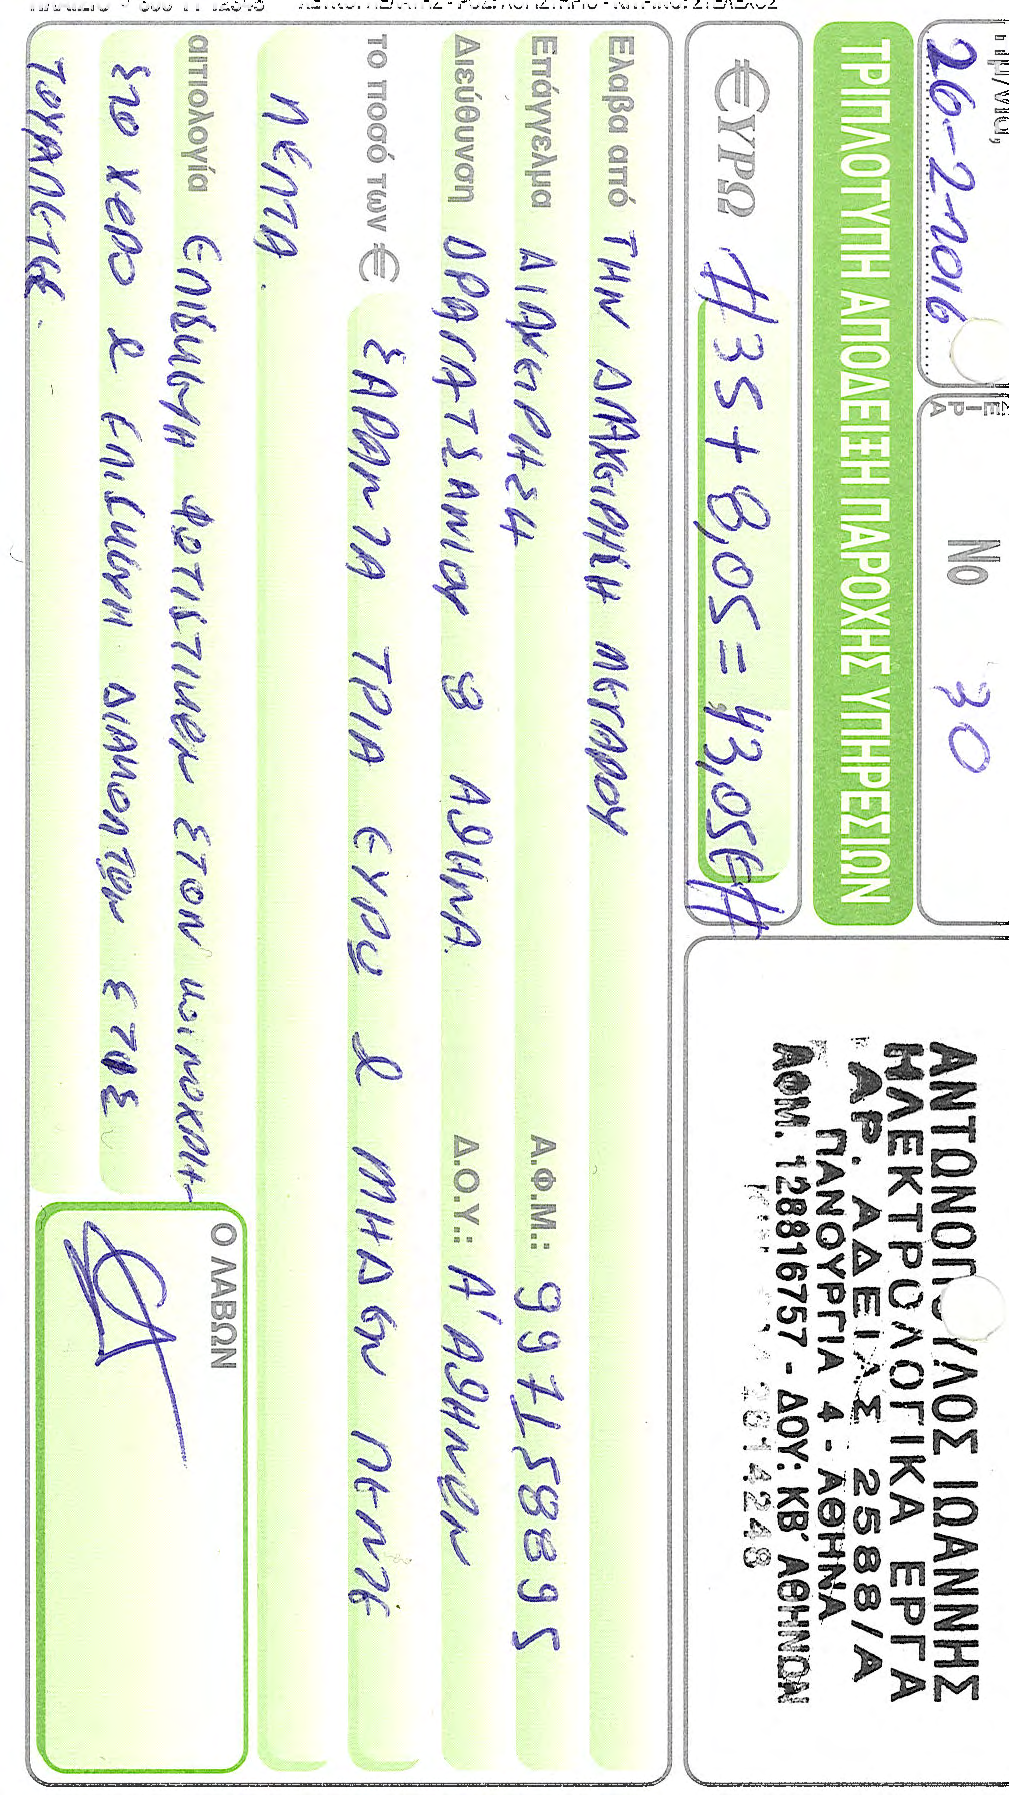 26-2-2016
No 30
ΤΡΙΠΛΟΤΥΠΗ ΑΠΟΔΕΙΞΗ ΠΑΡΟΧΗΣ ΥΠΗΡΕΣΙΩΝ
€ΥΡΩ #35+8,05=43,05€#
ΑΝΤΩΝΟΠΟΥΛΟΣ ΙΩΑΝΝΗΣ
ΗΛΕΚΤΡΟΛΟΓΙΚΑ ΕΡΓΑ
ΑΡ. ΑΔΕΙΑΣ 2588/Α
ΠΑΝΟΥΡΓΙΑ 4 - ΑΘΗΝΑ
ΑΦΜ. 128816757 - ΔΟΥ: ΚΒ' ΑΘΗΝΩΝ
Ελαβα από ΤΗΝ ΔΙΑΧΕΙΡΗΣΗ ΜΕΓΑΡΟΥ
Επάγγελμα ΔΙΑΧΕΙΡΗΣΗ Α.Φ.Μ.: 997158895
Διεύθυνση ΔΡΑΓΑΤΣΑΝΙΟΥ 8 ΑΘΗΝΑ Δ.Ο.Υ.: Α' ΑΘΗΝΩΝ
το ποσό των € ΣΑΡΑΝΤΑ ΤΡΙΑ ΕΥΡΩ & ΜΗΔΕΝ ΠΕΝΤΕ
ΛΕΠΤΑ.
αιτιολογία ΕΠΙΣΚΕΥΗ ΦΩΤΙΣΤΙΚΩΝ ΣΤΟΝ ΚΟΙΝΟΧΡΗ-
ΣΤΟ ΧΩΡΟ & ΕΠΙΣΚΕΥΗ ΔΙΑΚΟΠΤΩΝ ΣΤΙΣ
ΤΟΥΑΛΕΤΕΣ.
Ο ΛΑΒΩΝ